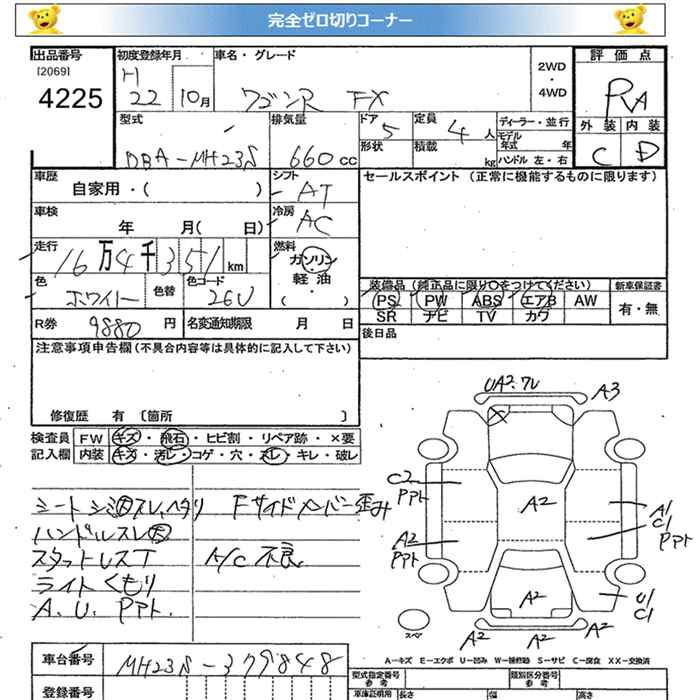 完全ゼロ切りコーナー
出品番号 初度登録年月 車名・グレード 2WD ・ 4WD 評価点
[2069]
4225 H 22 10月 ワゴンR FX RA
型式 排気量 ドア 5 定員 4人 ディーラー・並行 外装 内装
モデル年式 年
DBA-MH23S 660cc 形状 積載 kg ハンドル 左・右 C D
車歴 自家用・( ) シフト AT セールスポイント (正常に機能するものに限ります)
車検 年 月( 日) 冷房 AC
走行 16万4千351km 燃料 ガソリン・軽油・( )
色 ホワイト 色替 色コード 26U 装備品 (純正品に限り○をつけてください) 新車保証書
PS PW ABS エアB AW 有・無
SR ナビ TV カワ
R券 9880円 名変通知期限 月 日 後日品
注意事項申告欄 (不具合内容等は具体的に記入して下さい)
修復歴 有 〔箇所 〕
検査員 記入欄
FW キズ・飛石・ヒビ割・リペア跡・×要
内装 キズ・汚レ・コゲ・穴・スレ・キレ・破レ
シートシミ大スレ、ヘタリ Fサイドメンバー歪み
ハンドルスレ大
スタットレスT A/C不良
ライトくもり
A.U. PPt.
UA2.ワレ A3
C2 PPt
A2
A1 C1 PPt
A2 PPt
A2
U1 C1
スペア
A2 A2 A2
A-キズ E-エクボ U-凹み W-補修跡 S-サビ C-腐食 XX-交換済
車台番号 MH23S-379848 型式指定番号 参考 類別区分番号 参考
登録番号 車庫証明用 参考 長さ 幅 高さ